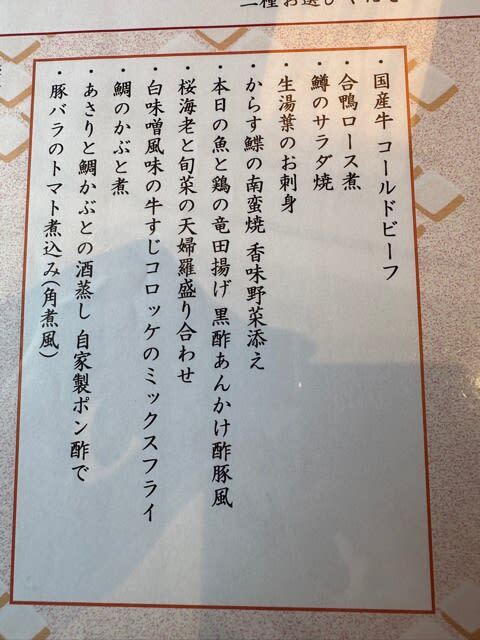 ・国産牛 コールドビーフ
・合鴨ロース煮
・鱒のサラダ焼
・生湯葉のお刺身
・からす鰈の南蛮焼 香味野菜添え
・本日の魚と鶏の竜田揚げ 黒酢あんかけ酢豚風
・桜海老と旬菜の天婦羅盛り合わせ
・白味噌風味の牛すじコロッケのミックスフライ
・鯛のかぶと煮
・あさりと鯛かぶとの酒蒸し 自家製ポン酢で
・豚バラのトマト煮込み(角煮風)